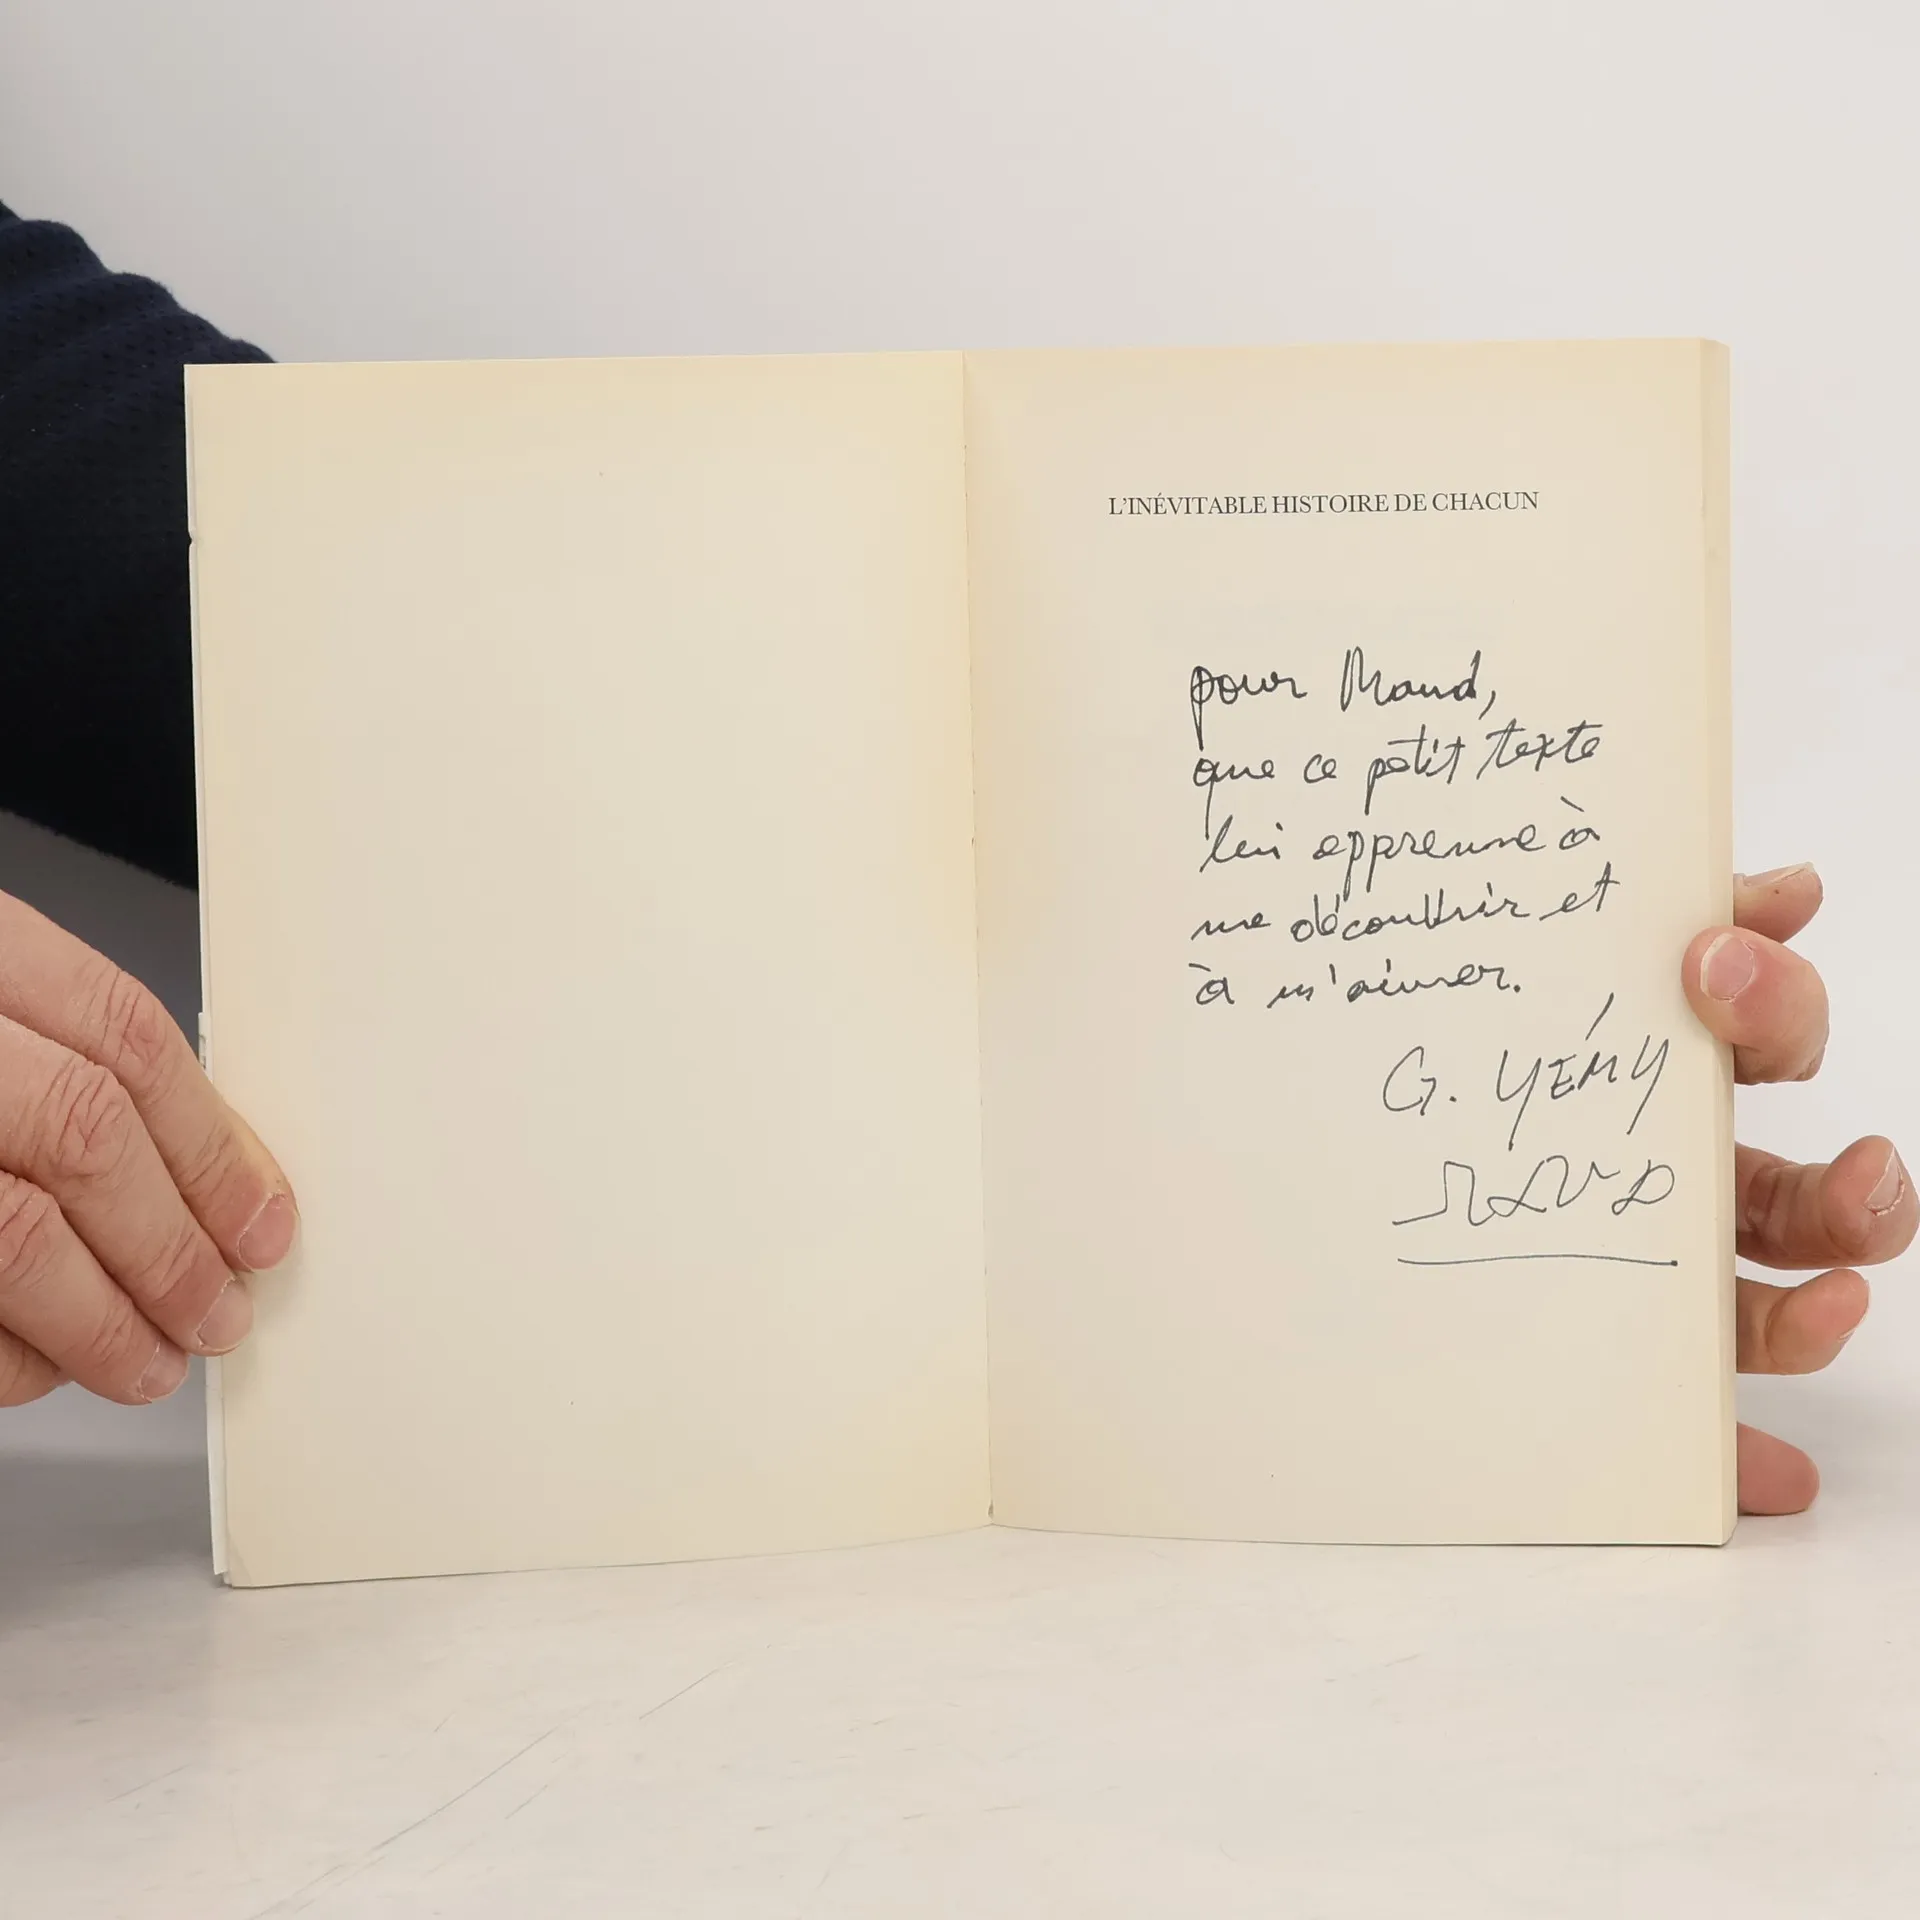 L'INÉVITABLE HISTOIRE DE CHACUN
pour Maud,
que ce petit texte
lui apprenne à
me découvrir et
à m'aimer.
G. YÉMY